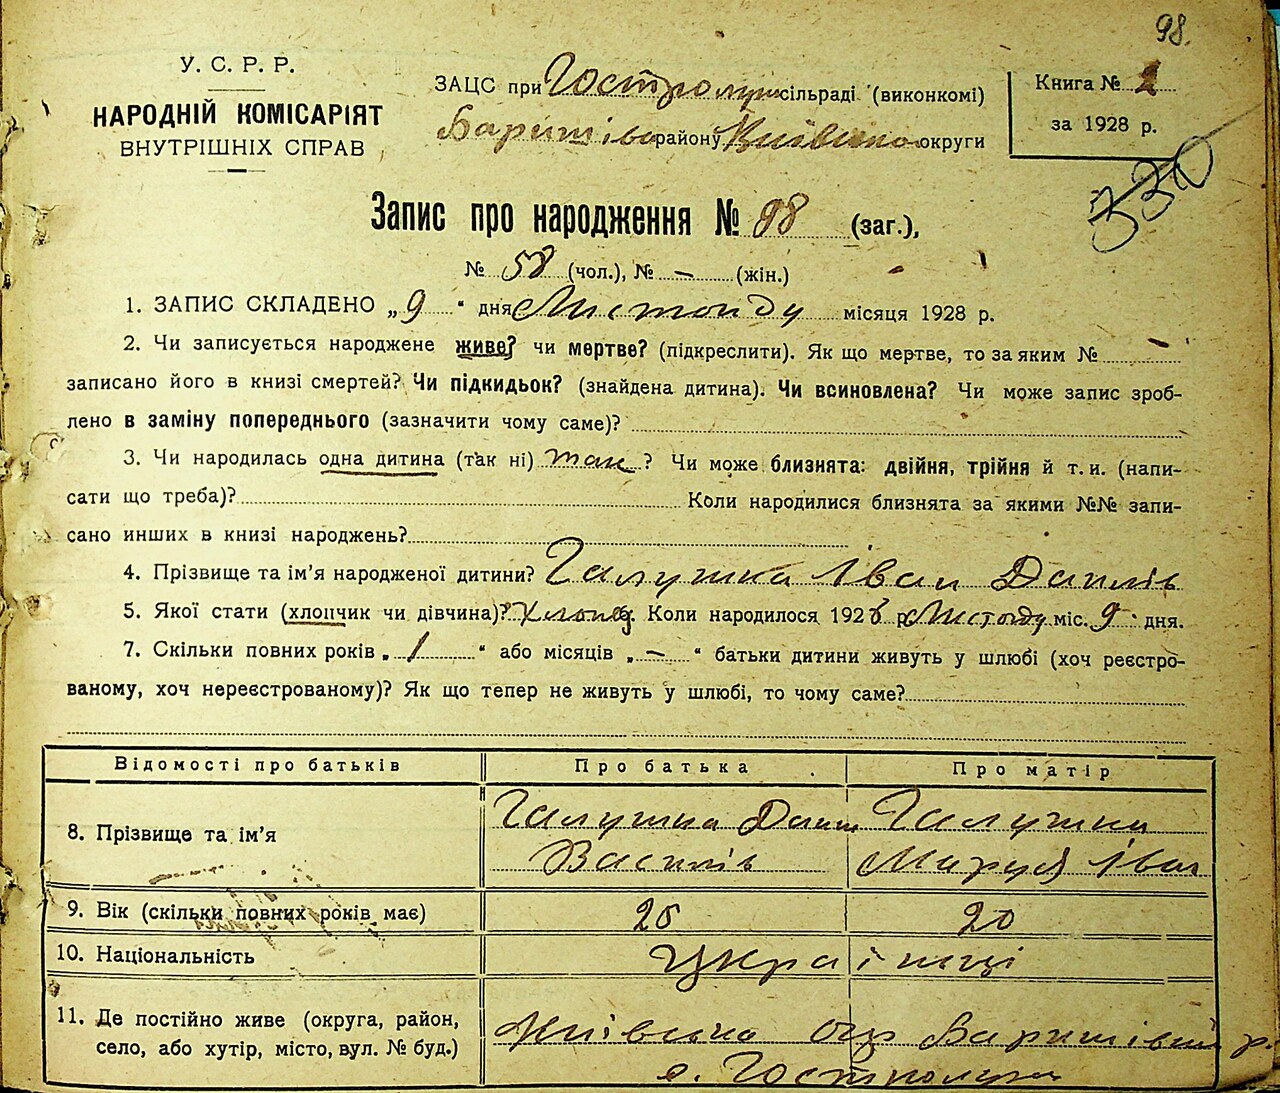 98.
У. С. Р. Р.
НАРОДНІЙ КОМІСАРІЯТ
ВНУТРІШНІХ СПРАВ
ЗАЦС при Гостролуч сільраді (виконкомі)
Баришів району Київської округи
Книга №
за 1928 р.
330
Запис про народження № 98 (заг.),
№ 58 (чол.), № — (жін.)
1. ЗАПИС СКЛАДЕНО „ 9 “ дня Листопаду місяця 1928 р.
2. Чи записується народжене живе? чи мертве? (підкреслити). Як що мертве, то за яким № —
записано його в книзі смертей? Чи підкидьок? (знайдена дитина). Чи всиновлена? Чи може запис зроб-
лено в заміну попереднього (зазначити чому саме)?
3. Чи народилась одна дитина (так ні) так ? Чи може близнята: двійня, трійня й т. и. (напи-
сати що треба)? Коли народилися близнята за якими №№ запи-
сано инших в книзі народжень?
4. Прізвище та ім’я народженої дитини? Галушка Іван Данилів
5. Якої стати (хлопчик чи дівчина)? Хлопец. Коли народилося 1928 р. Листопаду міс. 9 дня.
7. Скільки повних років „ 1 “ або місяців „ — “ батьки дитини живуть у шлюбі (хоч реєстро-
ваному, хоч нереєстрованому)? Як що тепер не живуть у шлюбі, то чому саме?
Відомості про батьків Про батька Про матір
8. Прізвище та ім’я Галушка Данил Василів Галушка Маруся Іван
9. Вік (скільки повних років має) 20
10. Національність Українці
11. Де постійно живе (округа, район, Київська окр Баришівський р.
село, або хутір, місто, вул. № буд.) с. Гостролуччя